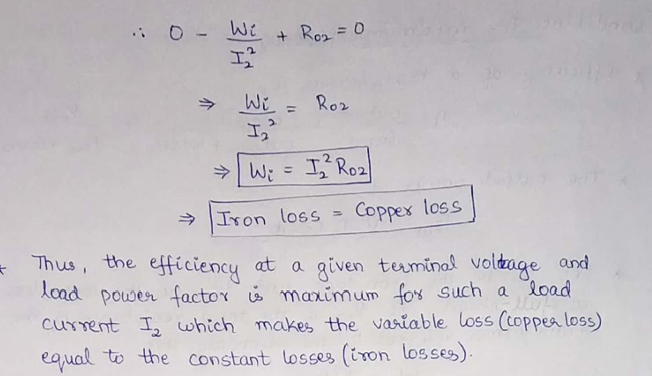 ∴ 0 - Wi/I₂² + R₀₂ = 0
⇒ Wi/I₂² = R₀₂
⇒ Wi = I₂² R₀₂
⇒ Iron loss = Copper loss
Thus, the efficiency at a given terminal voltage and
load power factor is maximum for such a load
current I₂ which makes the variable loss (copper loss)
equal to the constant losses (iron losses).